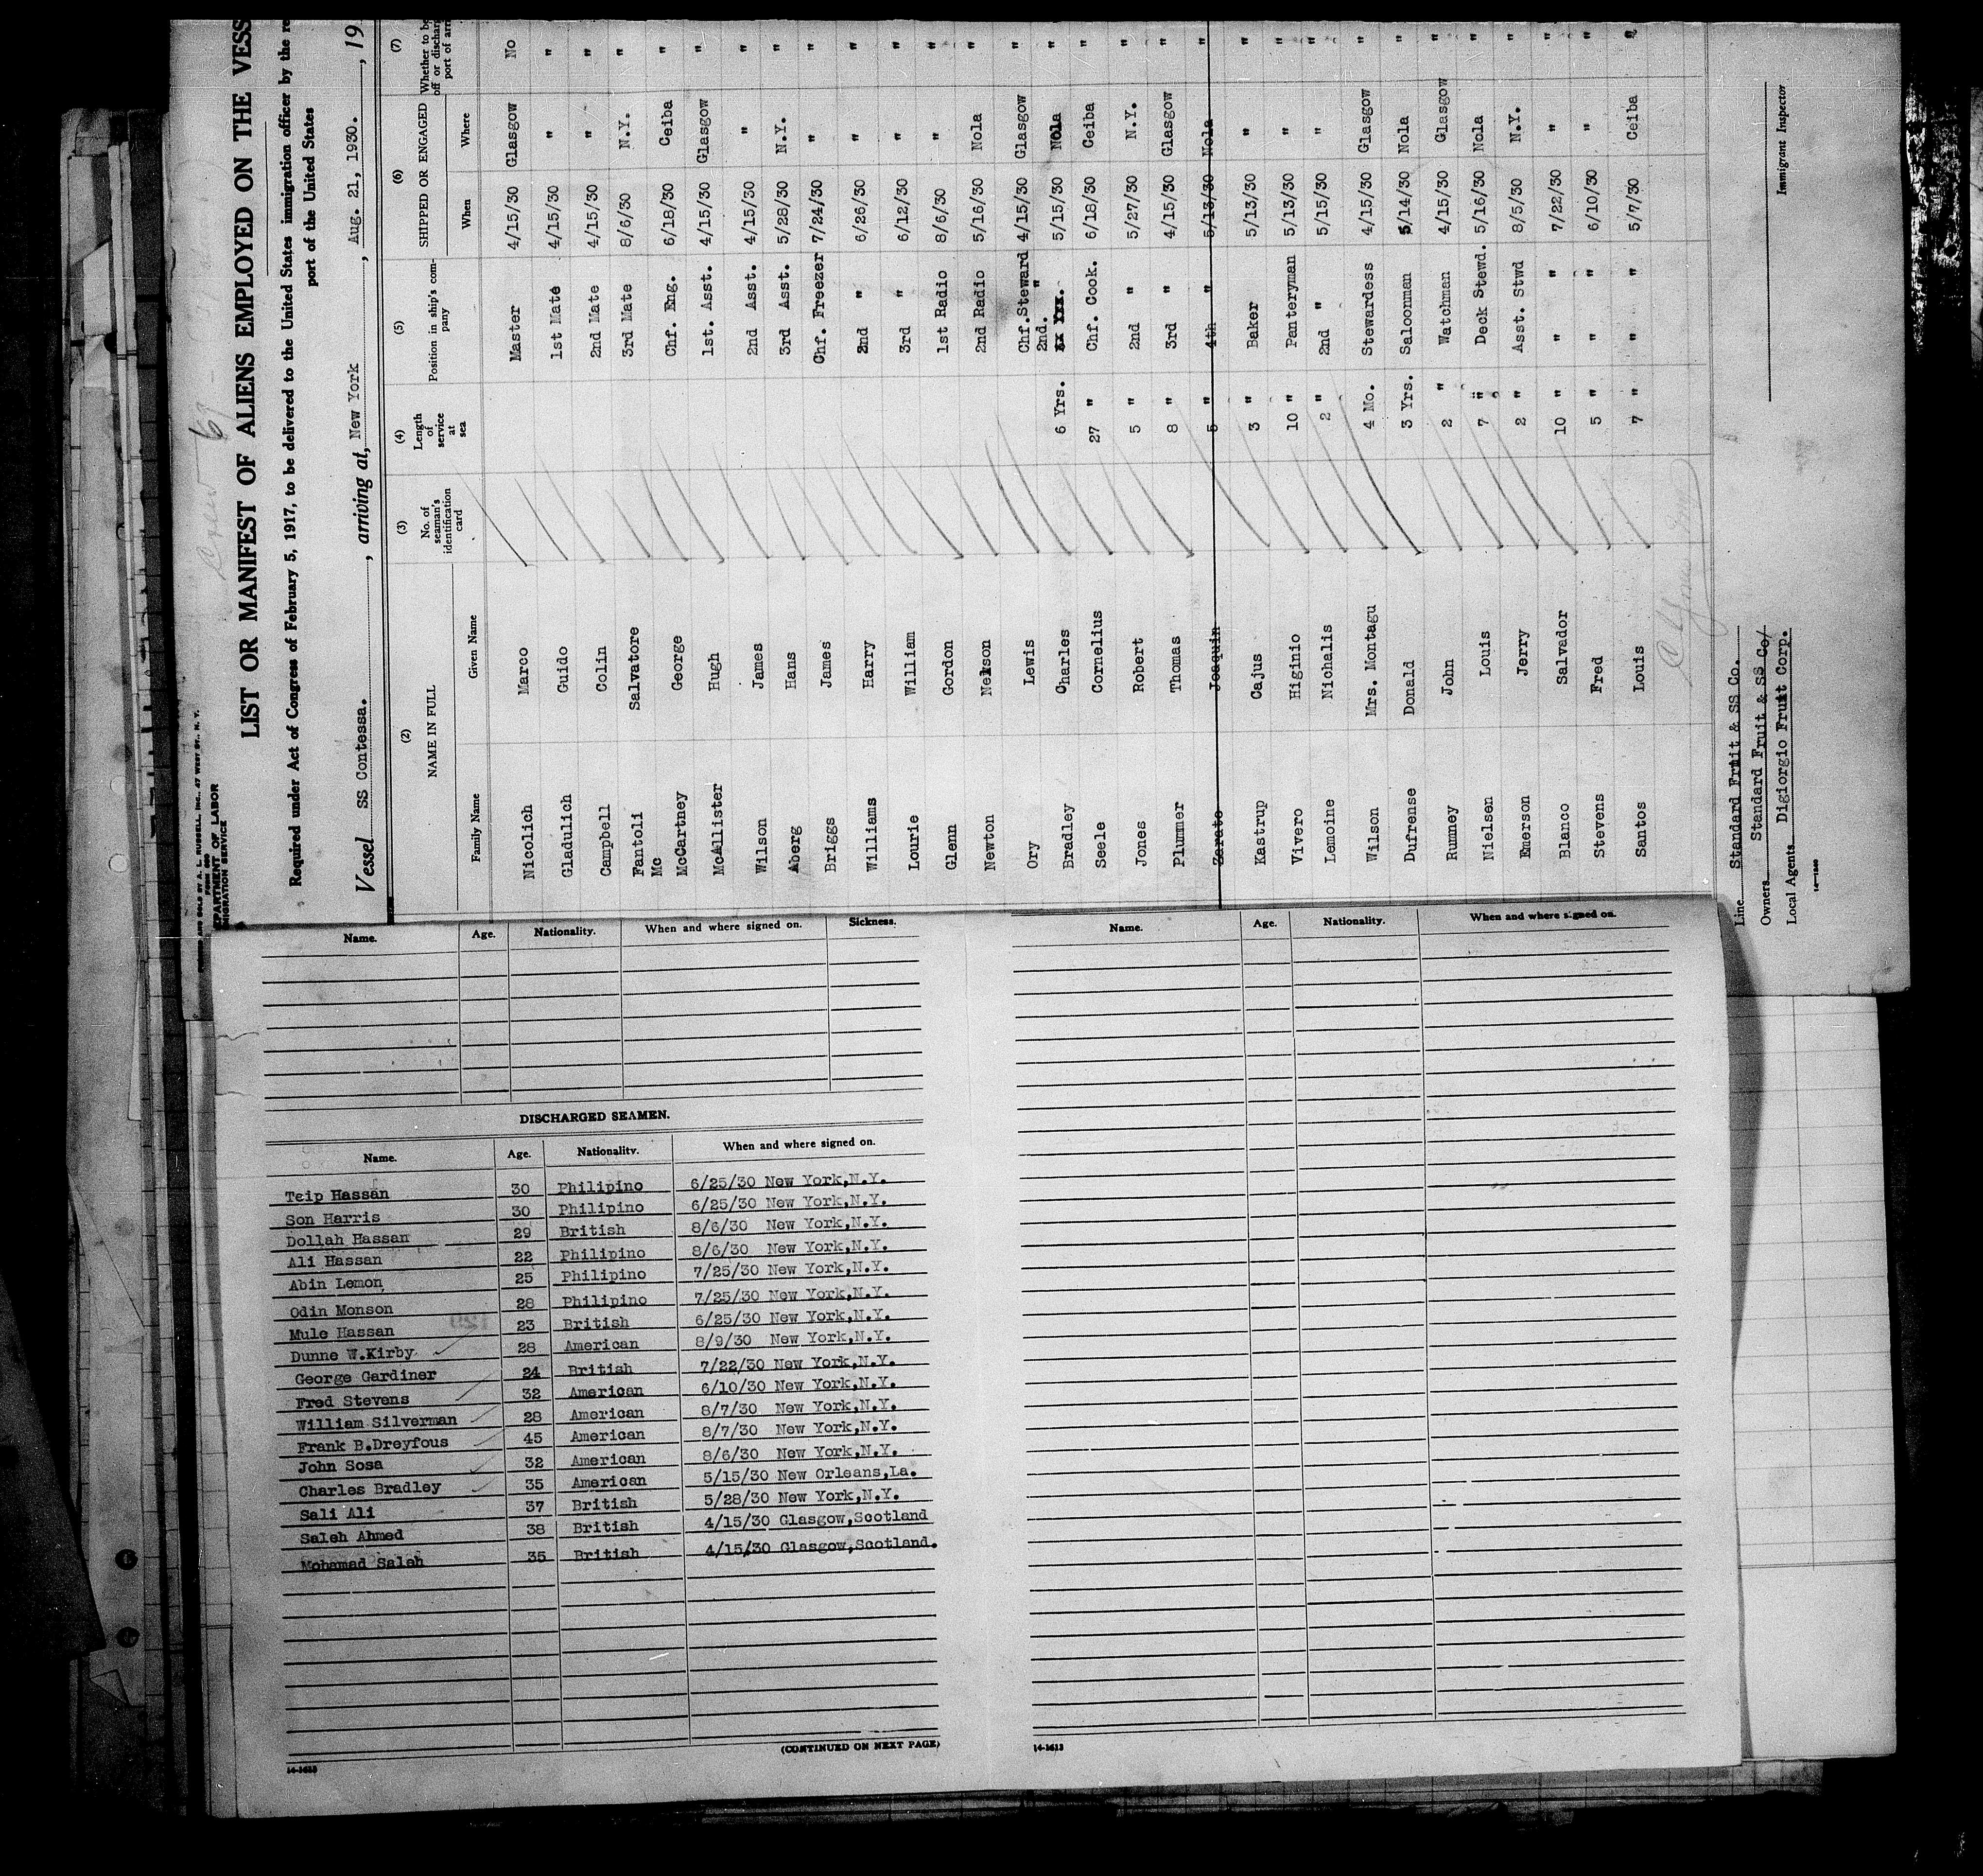 PRINTED AND SOLD BY A. L. RUSSELL, INC., 47 WEST ST., N. Y.
LIST OR MANIFEST OF ALIENS EMPLOYED ON THE VESS
Required under Act of Congress of February 5, 1917, to be delivered to the United States immigration officer by the re
port of the United States
Vessel SS Contessa. , arriving at, New York , Aug. 21, 1930. , 19
(2) (3) (4) (5) (6) (7)
NAME IN FULL No. of seaman's identification card Length of service at sea Position in ship's company SHIPPED OR ENGAGED
Family Name Given Name When Where
Nicolich Marco Master 4/15/30 Glasgow No
Gladulich Guido 1st Mate 4/15/30 " "
Campbell Colin 2nd Mate 4/15/30 " "
Fantoli Salvatore 3rd Mate 8/6/30 N.Y. "
Mc
McCartney George Chf. Eng. 6/18/30 Ceiba "
McAllister Hugh 1st. Asst. 4/15/30 Glasgow "
Wilson James 2nd Asst. 4/15/30 " "
Aberg Hans 3rd Asst. 5/28/30 N.Y. "
Briggs James Chf. Freezer 7/24/30 " "
Williams Harry 2nd " 6/26/30 " "
Lourie William 3rd " 6/12/30 " "
Glenn Gordon 1st Radio 8/6/30 " "
Newton Nelson 2nd Radio 5/16/30 Nola "
Ory Lewis Chf.Steward 4/15/30 Glasgow "
Bradley Charles 6 Yrs. 2nd. " 5/15/30 Nola "
Seele Cornelius 27 " Chf. Cook. 6/18/30 Ceiba "
Jones Robert 5 " 2nd " 5/27/30 N.Y. "
Plummer Thomas 8 " 3rd " 4/15/30 Glasgow "
Zarate Joaquin 5 " 4th " 5/13/30 Nola "
Kastrup Cajus 3 " Baker 5/13/30 " "
Vivero Higinio 10 " Panteryman 5/13/30 " "
Lemoine Nichalis 2 " 2nd " 5/15/30 " "
Wilson Mrs. Montagu 4 Mo. Stewardess 4/15/30 Glasgow "
Dufrense Donald 3 Yrs. Saloonman 5/14/30 Nola "
Rumney John 2 " Watchman 4/15/30 Glasgow "
Nielsen Louis 7 " Deck Stewd. 5/16/30 Nola "
Emerson Jerry 2 " Asst. Stwd 8/5/30 N.Y. "
Blanco Salvador 10 " " " 7/22/30 " "
Stevens Fred 5 " " " 6/10/30 " "
Santos Louis 7 " " " 5/7/30 Ceiba "
Line Standard Fruit & SS Co.
Owners Standard Fruit & SS Co/
Local Agents Digiorgio Fruit Corp.
Immigrant Inspector
Name. Age. Nationality. When and where signed on. Sickness.
DISCHARGED SEAMEN.
Name. Age. Nationality. When and where signed on.
Teip Hassan 30 Philipino 6/25/30 New York,N.Y.
Son Harris 30 Philipino 6/25/30 New York,N.Y.
Dollah Hassan 29 British 8/6/30 New York,N.Y.
Ali Hassan 22 Philipino 8/6/30 New York,N.Y.
Abin Lemon 25 Philipino 7/25/30 New York,N.Y.
Odin Monson 28 Philipino 7/25/30 New York,N.Y.
Mule Hassan 23 British 6/25/30 New York,N.Y.
Dunne W.Kirby 28 American 8/9/30 New York,N.Y.
George Gardiner 24 British 7/22/30 New York,N.Y.
Fred Stevens 32 American 6/10/30 New York,N.Y.
William Silverman 28 American 8/7/30 New York,N.Y.
Frank B.Dreyfous 45 American 8/7/30 New York,N.Y.
John Sosa 32 American 8/6/30 New York,N.Y.
Charles Bradley 35 American 5/15/30 New Orleans,La.
Sali Ali 37 British 5/28/30 New York,N.Y.
Saleh Ahmed 38 British 4/15/30 Glasgow,Scotland
Mohamad Saleh 35 British 4/15/30 Glasgow,Scotland.
(CONTINUED ON NEXT PAGE)
14-1613
Name. Age. Nationality. When and where signed on.
14-1613